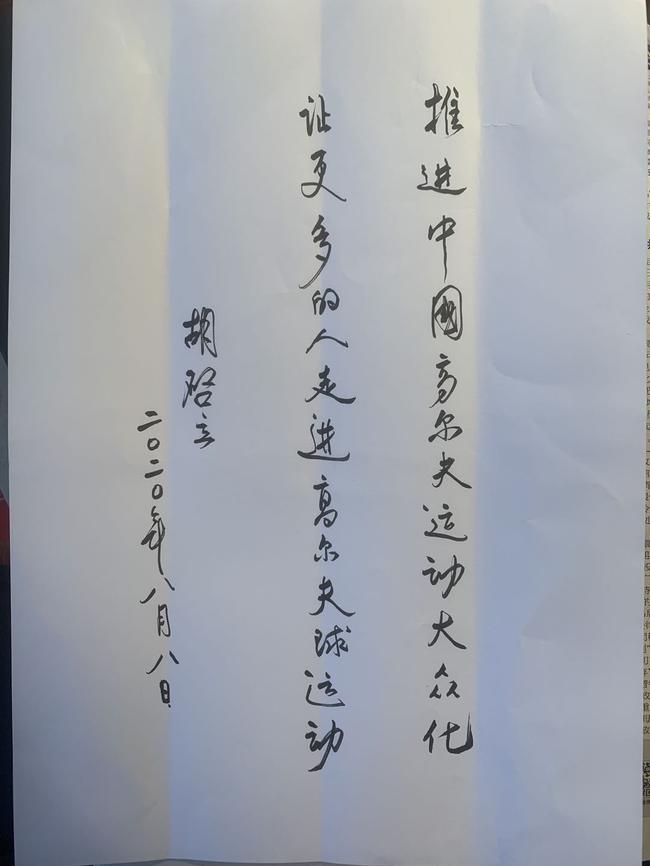 推进中國高尔夫运动大众化
让更多的人走进高尔夫球运动
胡啓立
二〇二〇年八月八日